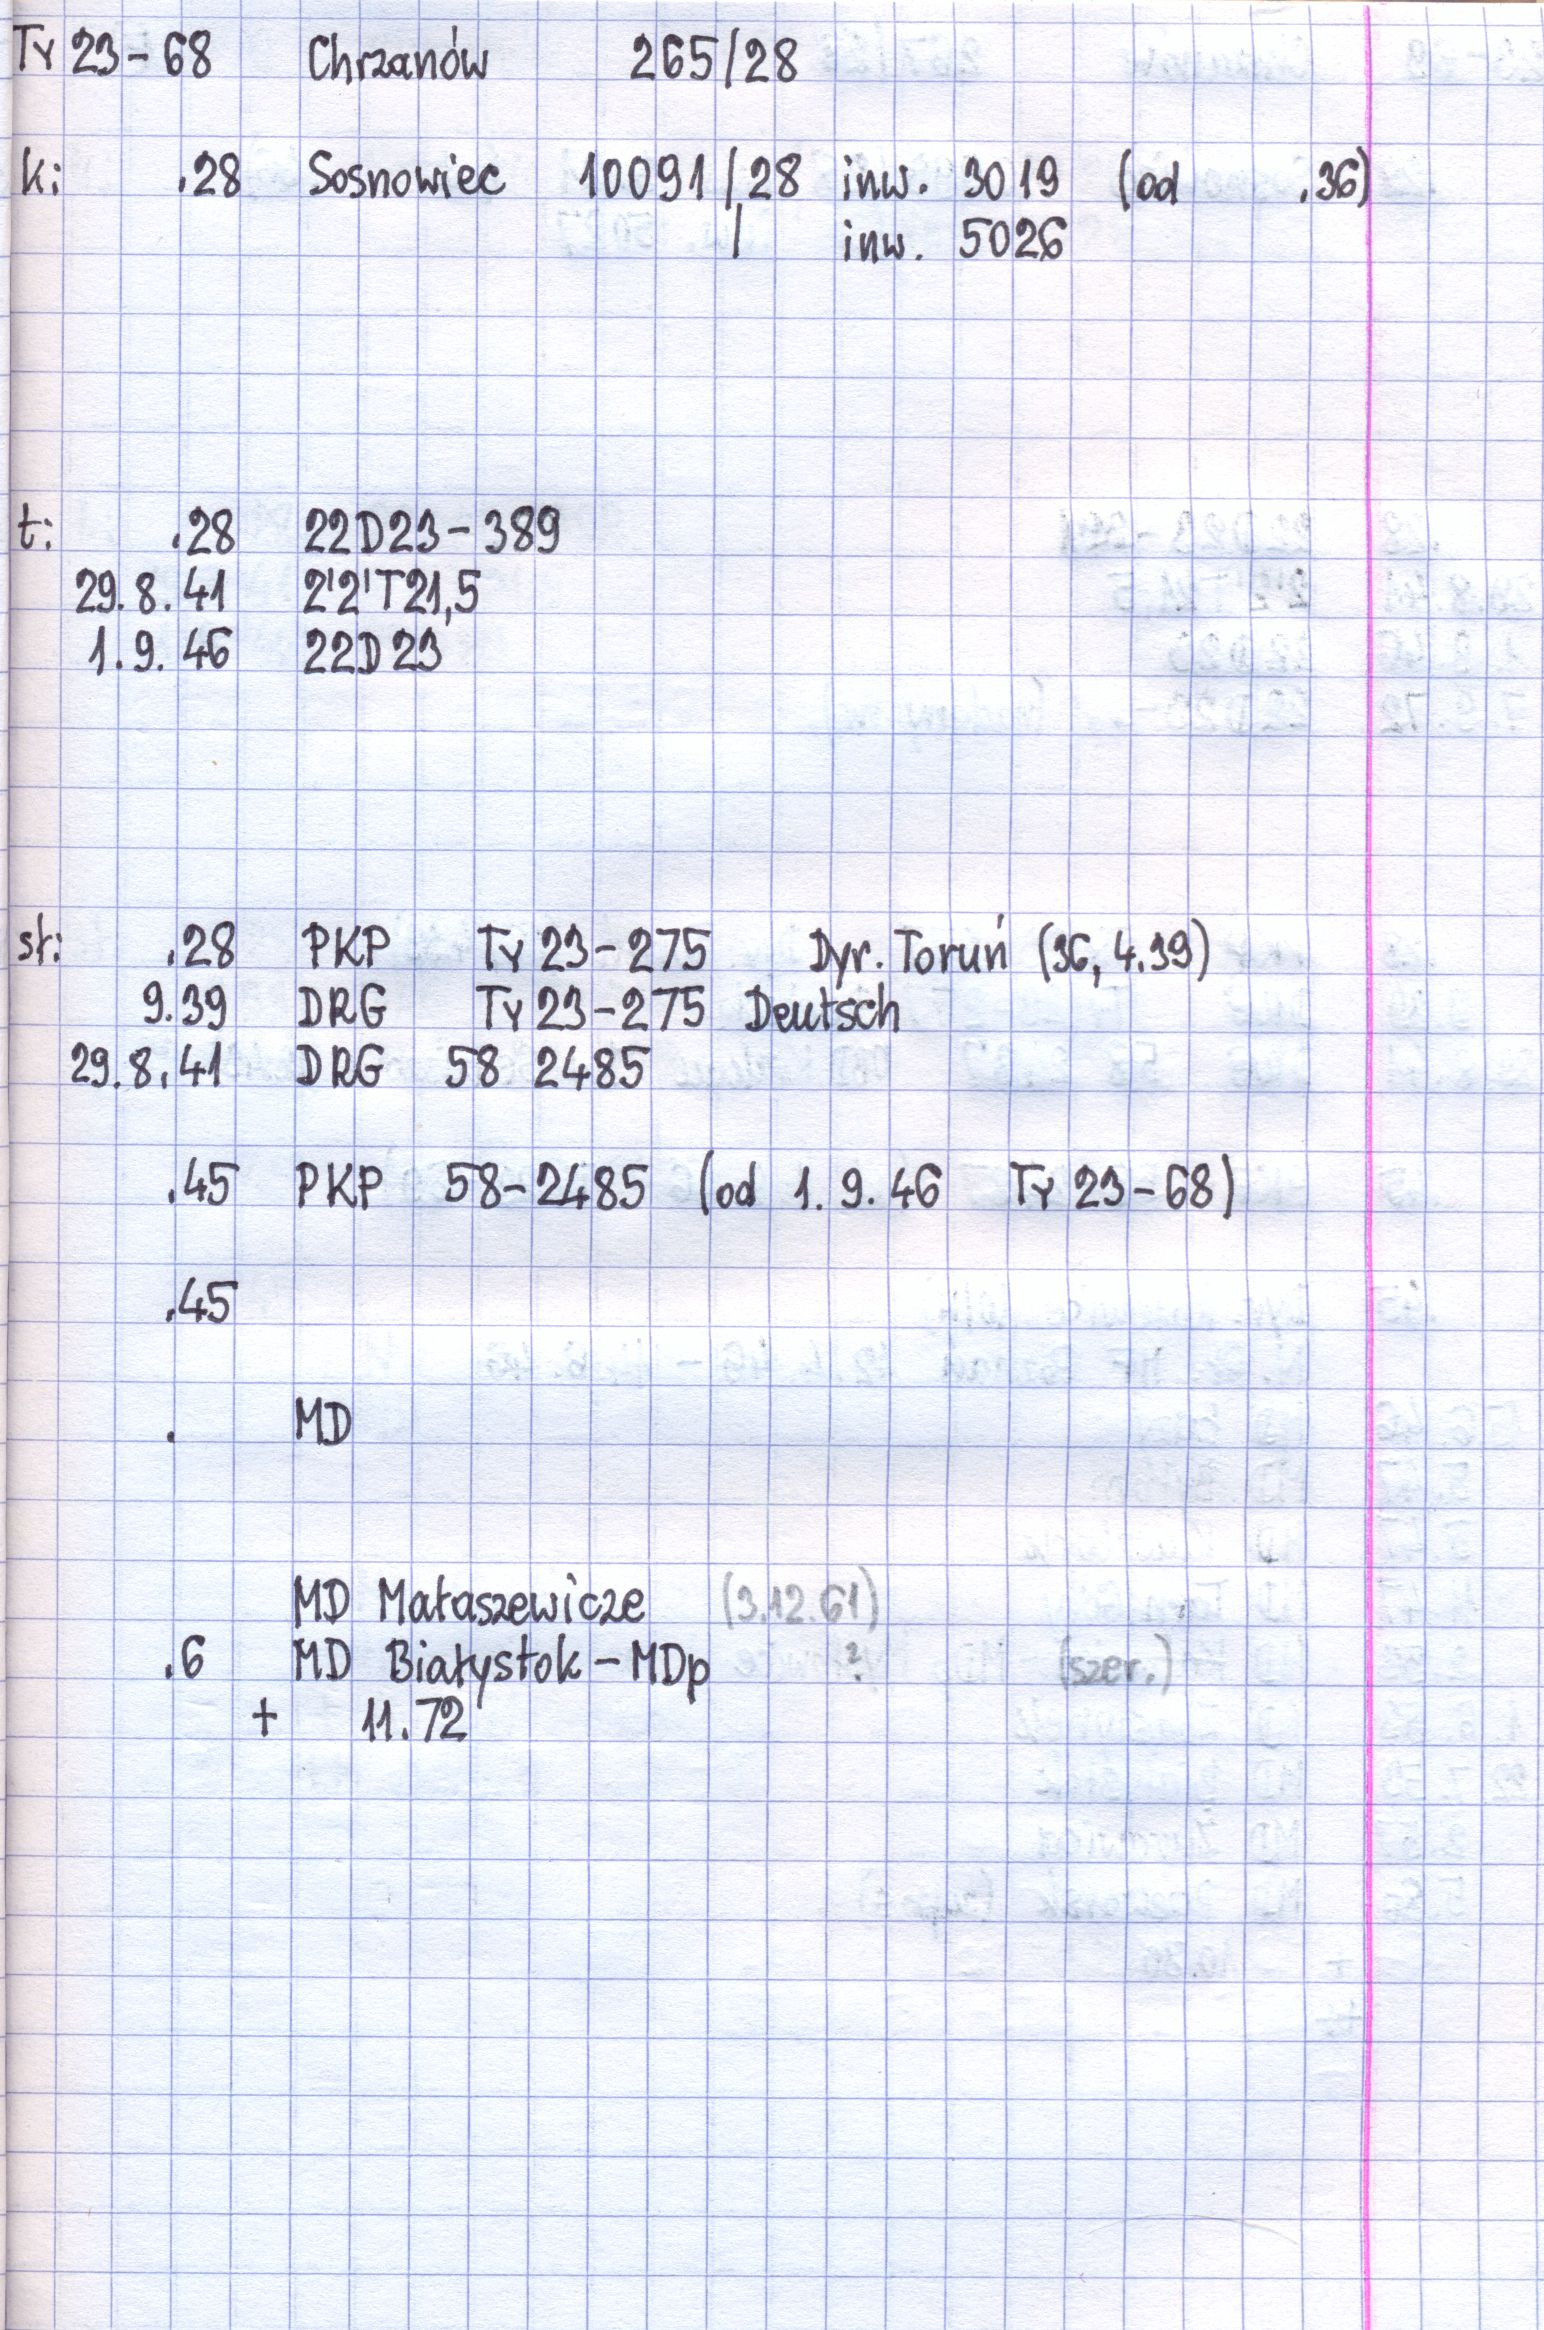 Ty 23-68 Chrzanów 265/28
k: .28 Sosnowiec 10091/28 inw. 3019 (od .36)
/ inw. 5026
t: .28 22D23-389
29.8.41 2'2'T21,5
1.9.46 22D23
sł: .28 PKP Ty 23-275 Dyr. Toruń (36, 4.39)
9.39 DRG Ty 23-275 Deutsch
29.8.41 DRG 58 2485
.45 PKP 58-2485 (od 1.9.46 Ty 23-68)
.45
. MD
MD Małaszewicze (3.12.61)
.6 MD Białystok-MDp ? (szer.)
+ 11.72